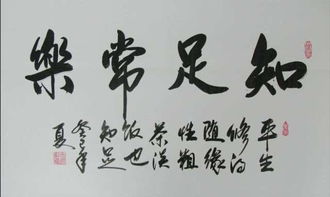 知足常樂
平生
修得
随缘
性粗
茶淡
饭也
知足
癸巳年
夏